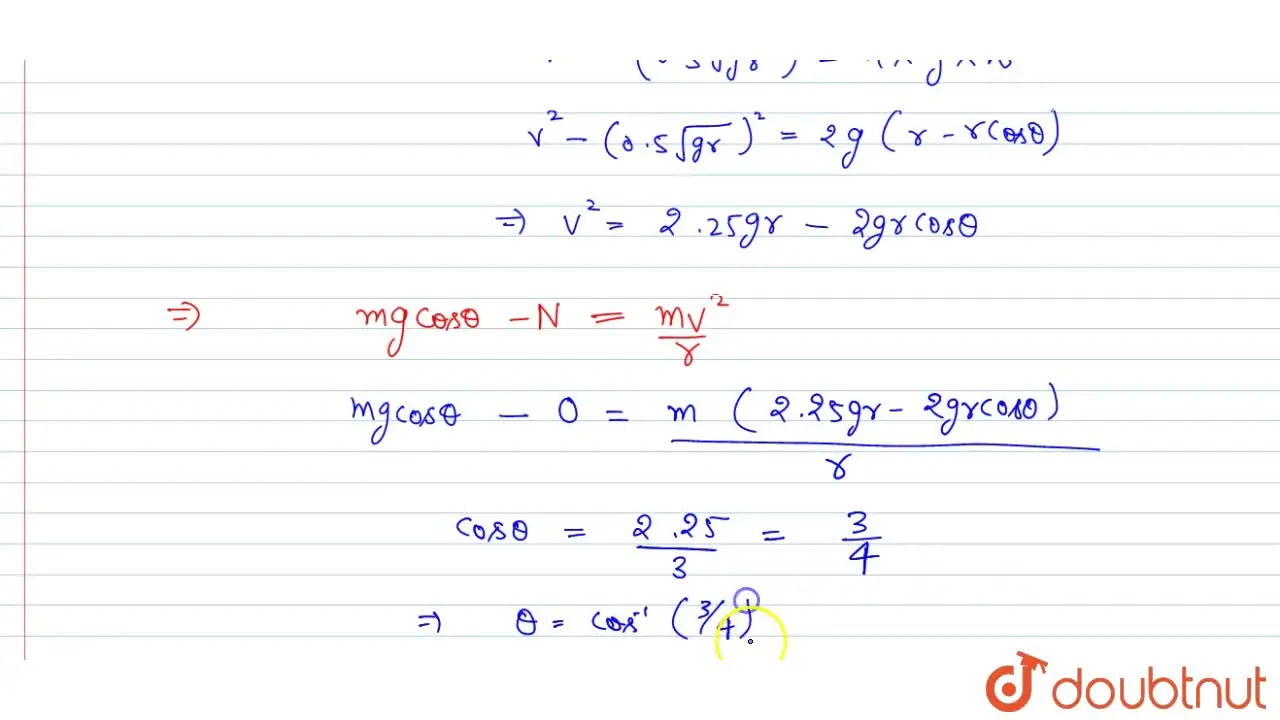 v² − (0.5√gr)² = 2g (r − rcosθ)
⇒ v² = 2.25gr − 2grcosθ
⇒ mgcosθ − N = mv²/r
mgcosθ − 0 = m (2.25gr − 2grcosθ)/r
cosθ = 2.25/3 = 3/4
⇒ θ = cos⁻¹ (3/4)
doubtnut